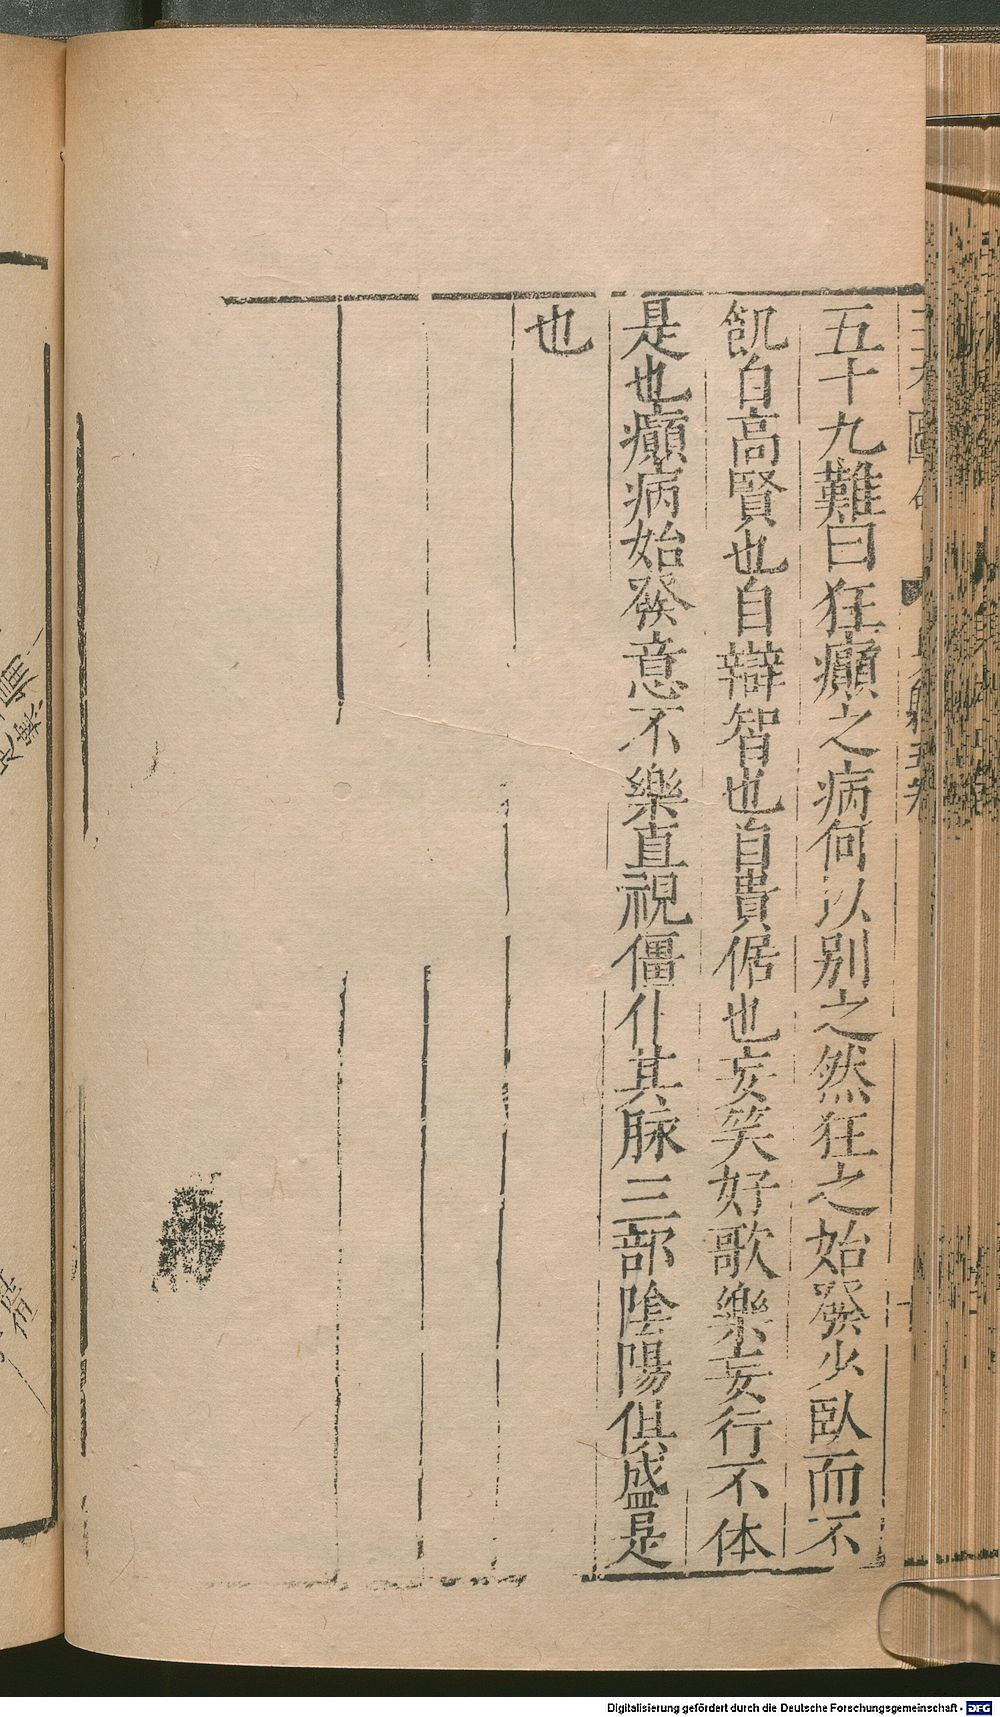 五十九難曰狂癲之病何以別之然狂之始發少臥而不
飢自高賢也自辯智也自貴倨也妄笑好歌樂妄行不体
是也癲病始發意不樂直視僵仆其脉三部陰陽俱盛是
也
Digitalisierung gefördert durch die Deutsche Forschungsgemeinschaft - DFG